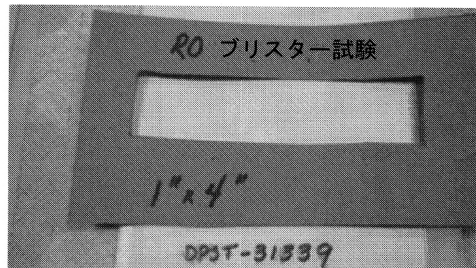 RO ブリスター試験
1" x 4"
DPST-31339